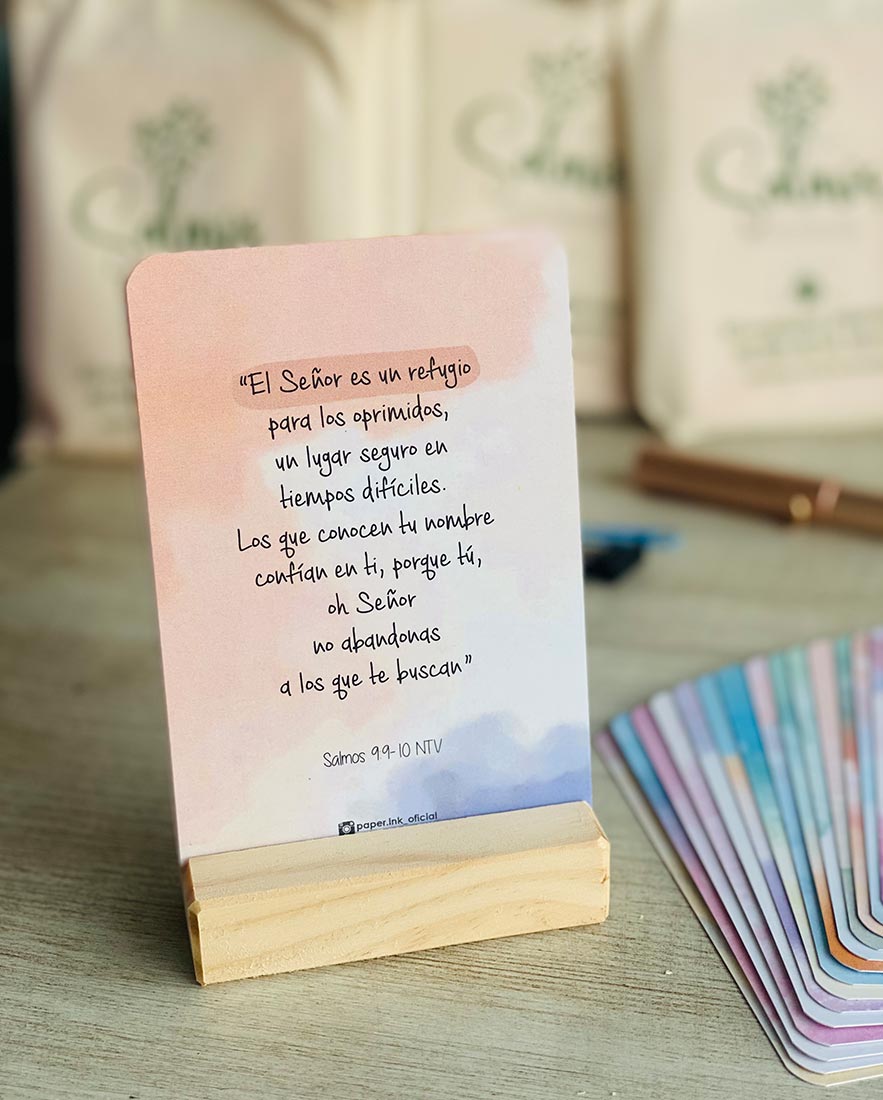 “El Señor es un refugio
para los oprimidos,
un lugar seguro en
tiempos difíciles.
Los que conocen tu nombre
confían en ti, porque tú,
oh Señor
no abandonas
a los que te buscan”
Salmos 9.9-10 NTV
paper.ink_oficial